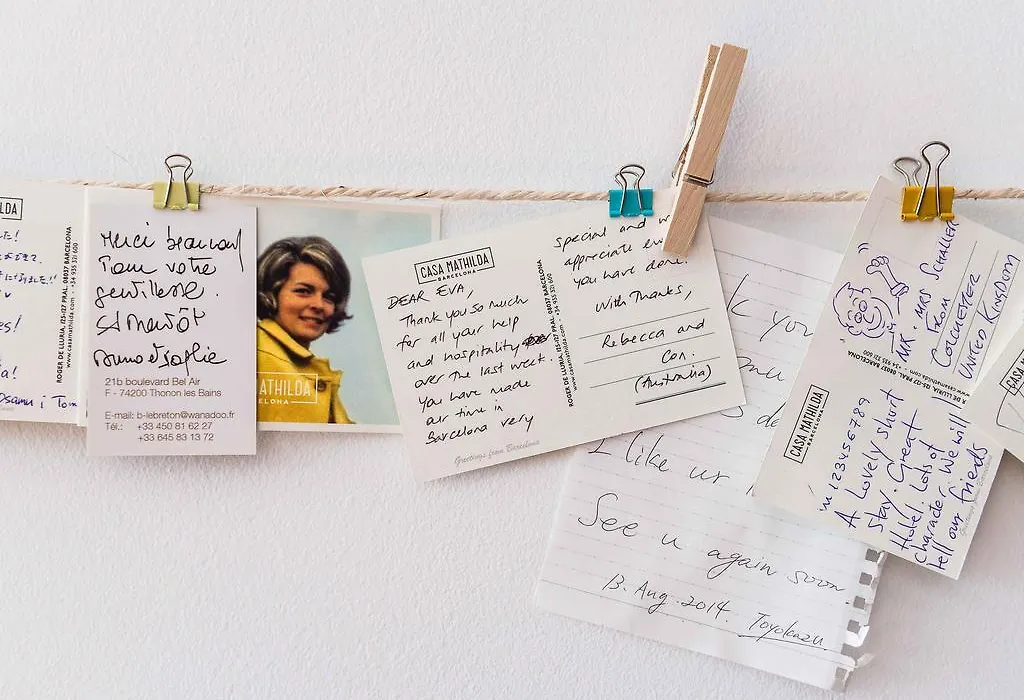 LDA
ROGER DE LLURIA, 125-127 PRAL. 08037 BARCELONA
www.casamathilda.com · +34 935 321 600
Osamu i Tom
Merci beaucoup
Pour votre
gentillesse.
à bientôt
Bruno et Sophie
21b boulevard Bel Air
F - 74200 Thonon les Bains
E-mail: b-lebreton@wanadoo.fr
Tél.: +33 450 81 62 27
+33 645 83 13 72
ATHILDA
ELONA
CASA MATHILDA
BARCELONA
DEAR EVA,
Thank you so much
for all your help
and hospitality
over the last week.
You have made
our time in
Barcelona very
Greetings from Barcelona
ROGER DE LLURIA, 125-127 PRAL. 08037 BARCELONA
www.casamathilda.com · +34 935 321 600
special and w
appreciate
you have done.
With Thanks,
Rebecca and
Con.
(Australia)
k you
I like ur
See u again soon
13. Aug. 2014. Toyokazu
CASA MATHILDA
BARCELONA
123456789
A Lovely short
stay. Great
Hotel. Lots of
character. We will
tell our friends
MR · MRS SCHALLER
from
COLCHESTER
UNITED KINGDOM